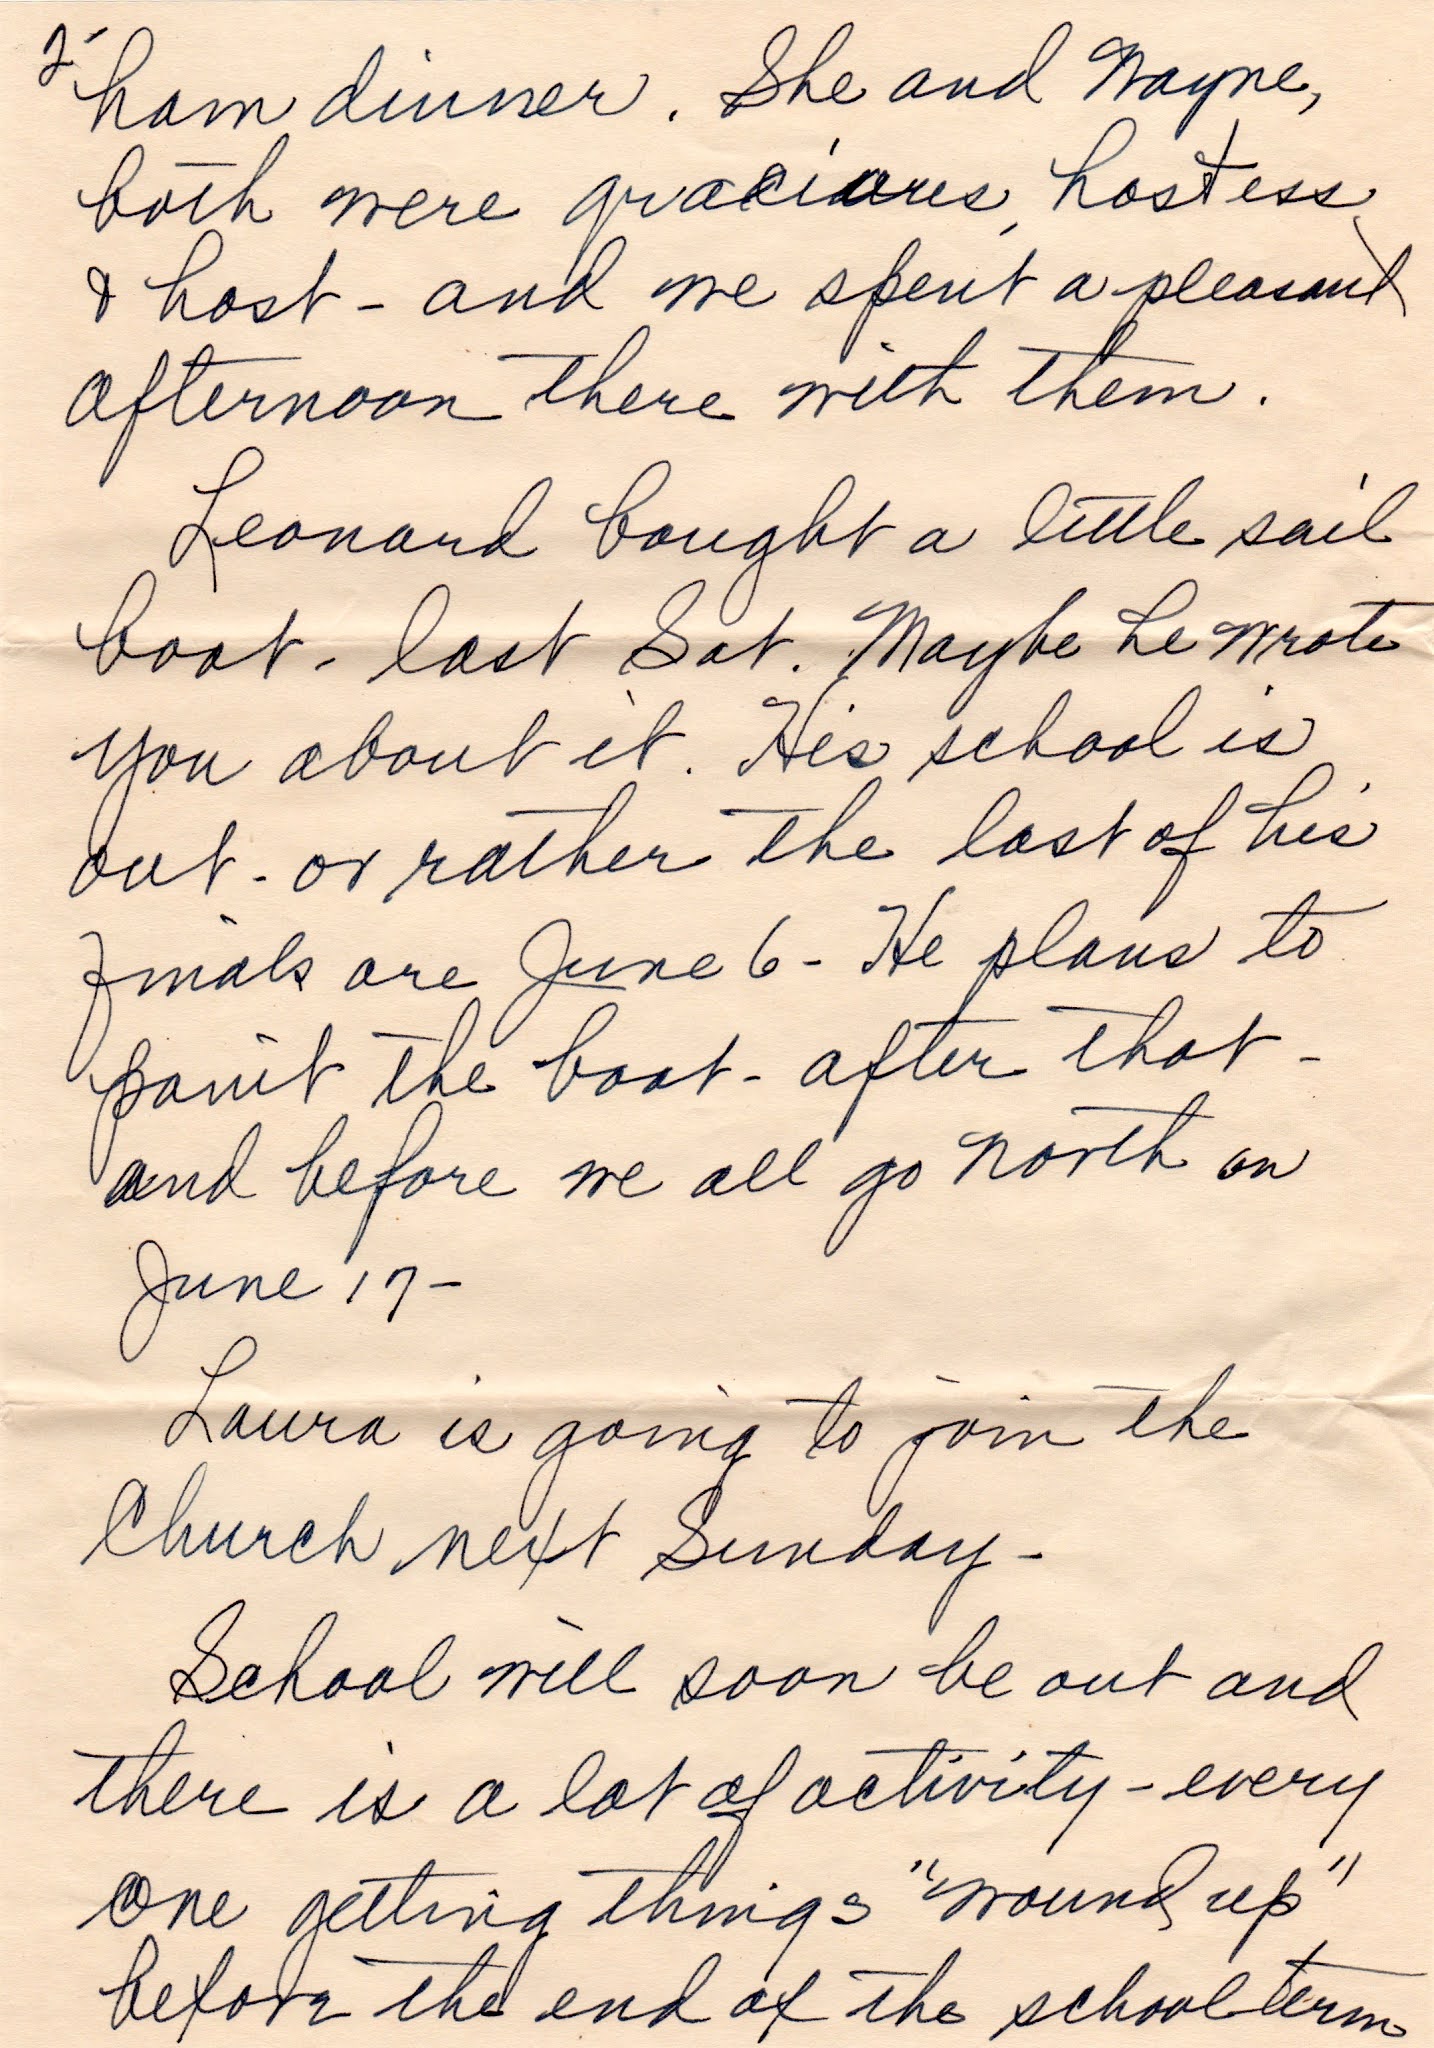 2-
ham dinner. She and Wayne,
both were gracious, hostess
& host - and we spent a pleasant
afternoon there with them.
Leonard bought a little sail
boat - last Sat. Maybe he wrote
you about it. His school is
out - or rather the last of his
finals are June 6 - He plans to
paint the boat - after that -
and before we all go north on
June 17 -
Laura is going to join the
Church next Sunday -
School will soon be out and
there is a lot of activity - every
one getting things "wound up"
before the end of the school term